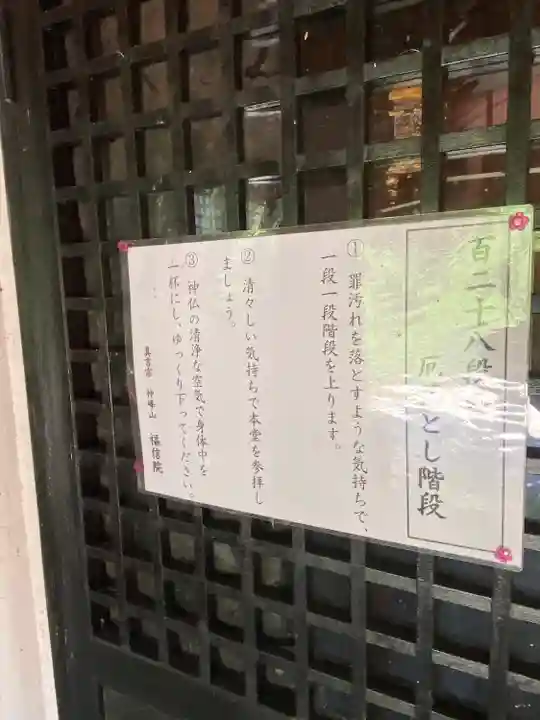 百二十八段
厄とし階段
① 罪汚れを落とすような気持ちで、
一段一段階段を上ります。
② 清々しい気持ちで本堂を参拝し
ましょう。
③ 神仏の清浄な空気で身体中を
一杯にし、ゆっくり下ってください。
真言宗 神峰山 福信院